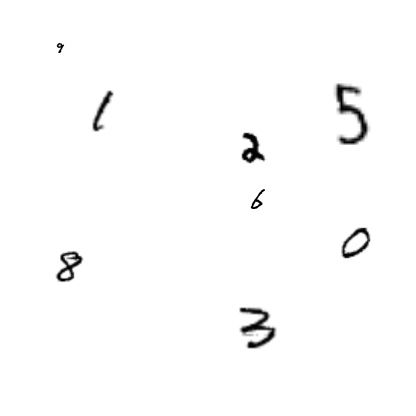 9
1
5
2
6
0
8
3